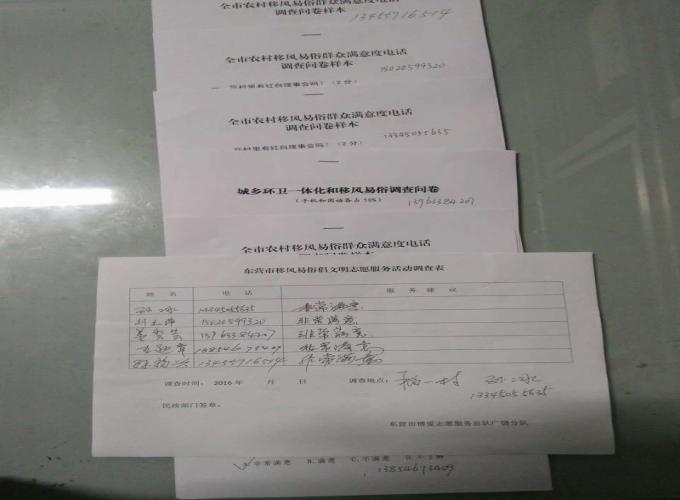 全市农村移风易俗群众满意度电话
调查问卷样本
13455716514
全市农村移风易俗群众满意度电话
调查问卷样本
15020599320
一 你村里有红白理事会吗?(2分)
全市农村移风易俗群众满意度电话
调查问卷样本
13345055635
你村里有红白理事会吗?(2分)
城乡环卫一体化和移风易俗调查问卷
(手机和固话各占50%)
13963384207
全市农村移风易俗群众满意度电话
东营市移风易俗倡文明志愿服务活动调查表
姓 名 电 话 服 务 建 议
13345055635 非常满意
15020599320 非常满意
13963384207 非常满意
13854673409 非常满意
13455716514 非常满意
调查时间: 2016 年 月 日 调查地点: 一村
13345055635
民政部门签章。
东营市博爱志愿服务总队广饶分队
A.非常满意 B.满意 C.不满意 D.不了解
13854673409